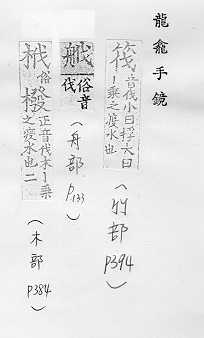 龍龕手鏡
筏音伐小曰桴大曰丨乘之渡水也
(竹部 p394)
俗音伐
(舟部 p133)
栰俗橃正音伐木丨乘之渡水也二
(木部 p384)